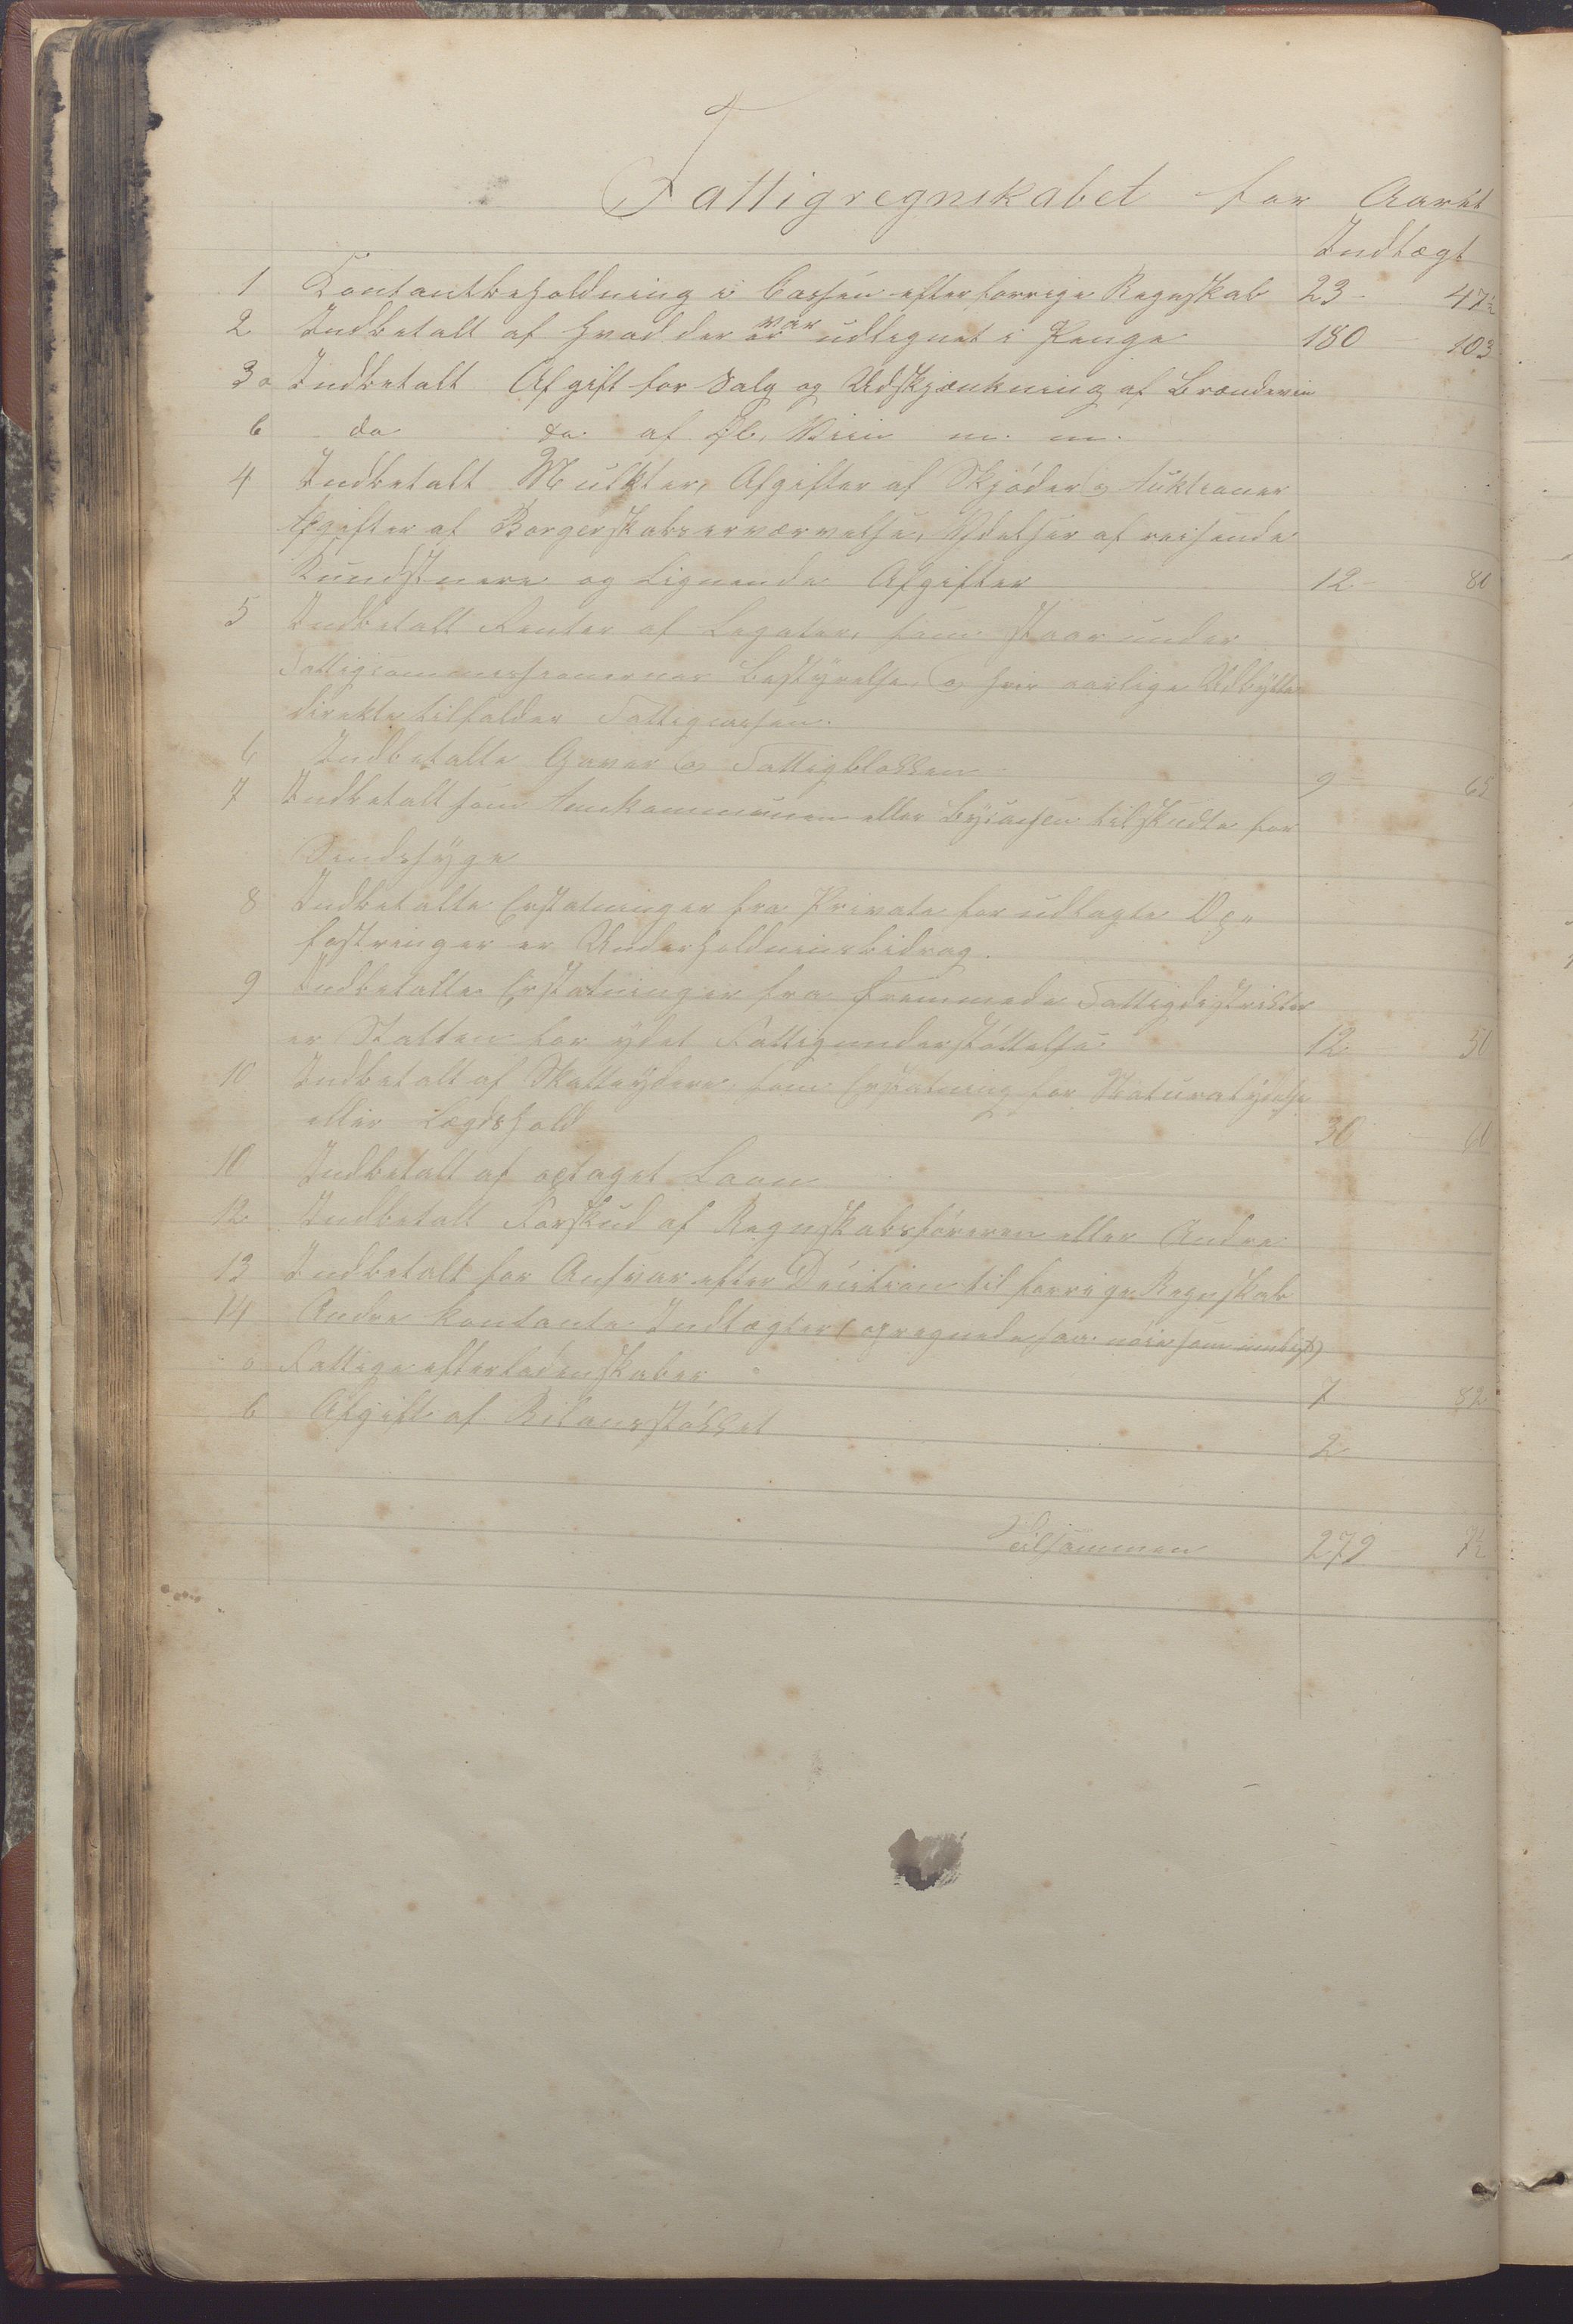 Fattigregnskabet for Aaret
Indtægt
1 Contantbeholdning i Cassen efter forrige Regnskab 23 - 47½
2 Indbetalt af hvad der er var udlignet i Penge 180 - 103
3 a Indbetalt Afgift for Salg og Udskjænkning af Brændeviin
b do do af Øl, Viin m. m.
4 Indbetalt Mulkter, Afgifter af Skjøder og Auktioner
Afgifter af Borgerskabserværvelse, Ydelser af reisende
Kundstnere og lignende Afgifter 12 - 80
5 Indbetalt Renter af Legater, som staar under
Fattigcommissionernes Bestyrelse og hvis aarlige Udbytte
direkte tilfalder Fattigcassen.
6 Indbetalte Gaver og Fattigblokken 9 - 65
7 Indbetalt som Amtkommunen eller Bycassen tilskudte for
Sindssyge
8 Indbetalte Erstatninger fra Private for udlagte Op„
fostringer er Underholdninsbidrag.
9 Indbetalte Erstatninger fra fremmede Fattigdistrikter
er Statten for ydet Fattigunderstøttelse. 12 50
10 Indbetalt af Skatteydere som Erstatning for Naturalydelse
eller Lægdshold 30 - 60
10 Indbetalt af optaget Laan
12 Indbetalt Forskud af Regnskabsføreren eller Andre
13 Indbetalt for Ansvar efter Decition til forrige Regnskab
14 Andre kontante Indtægter (opregnede saa nøie som muligt)
a Fattiges efterladenskaber 7 82
b Afgift af 2
Tilsammen 279 - 7½